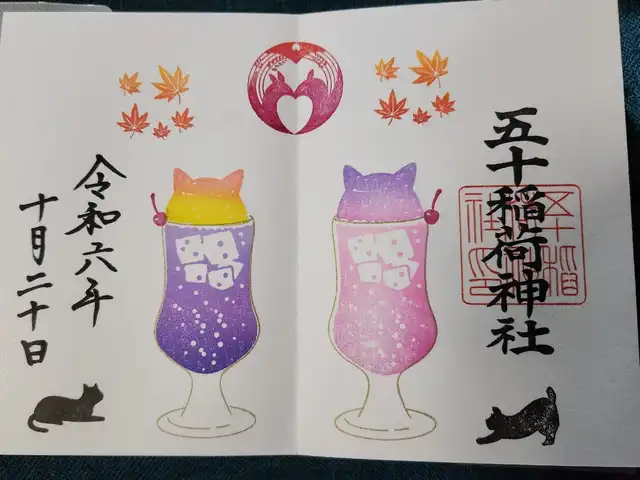 五十稲荷神社
令和六年
十月二十日